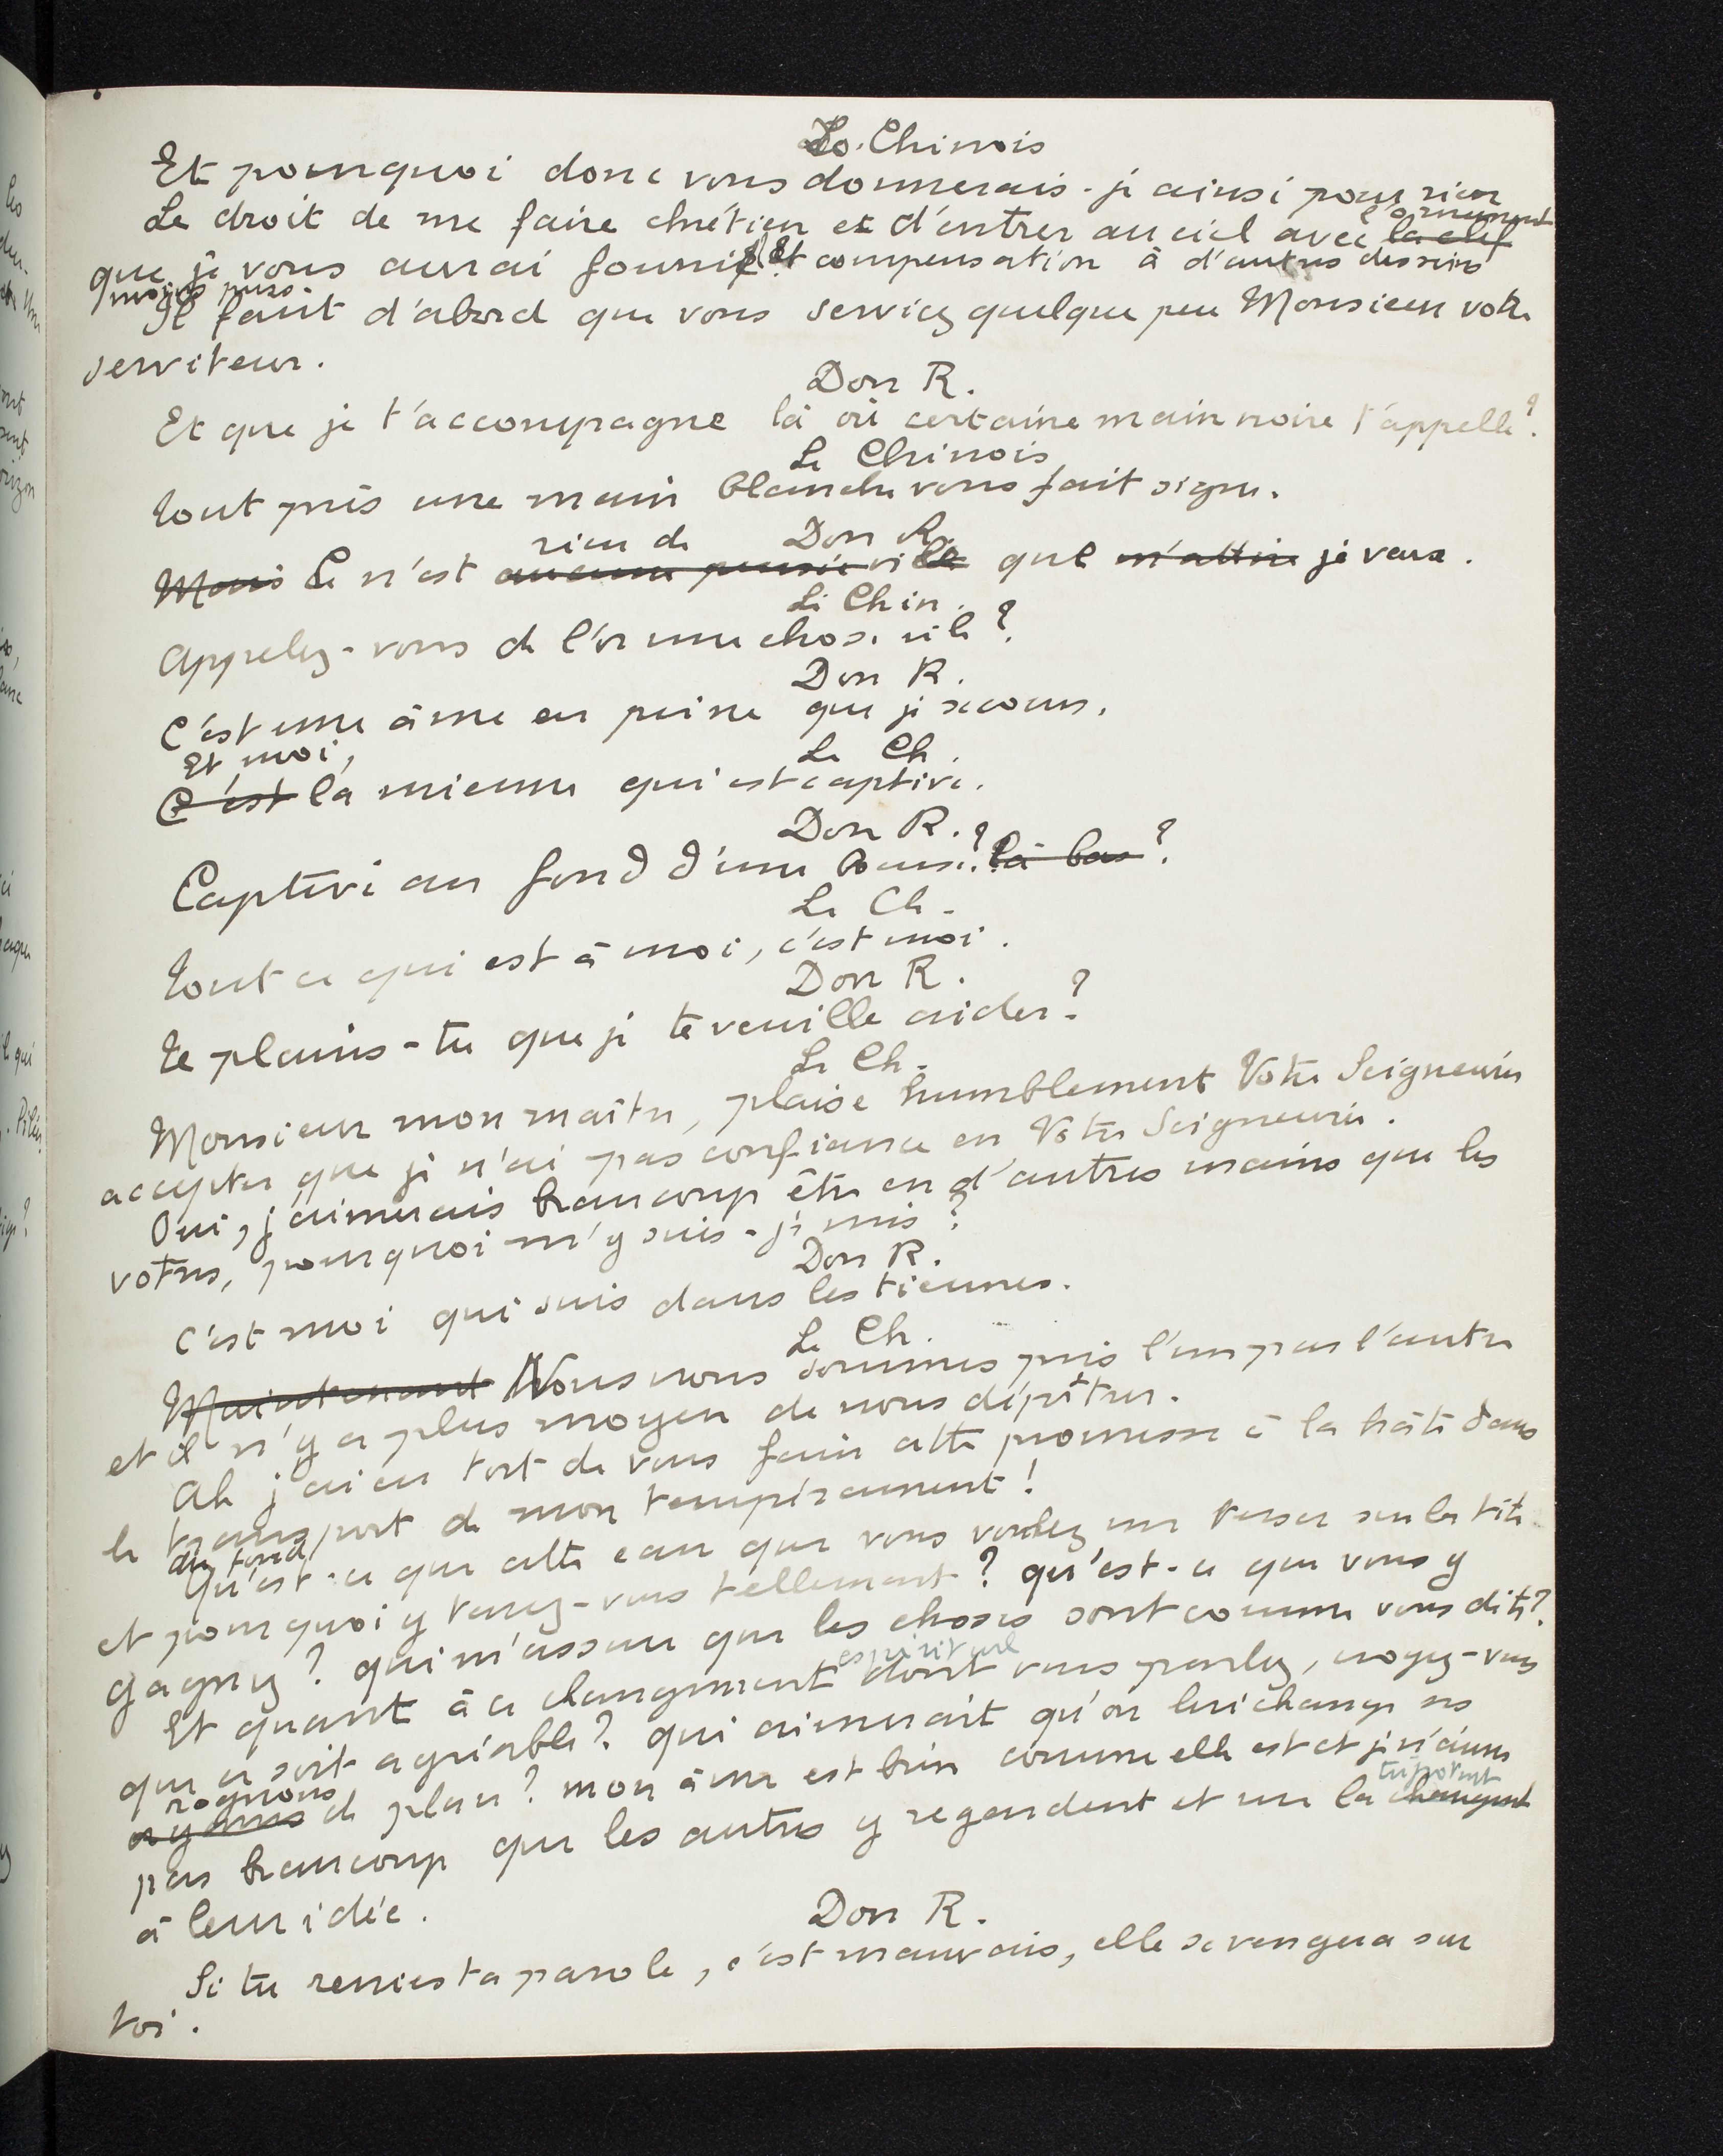 Le Chinois
Et pourquoi donc vous donnerais-je ainsi pour rien
Le droit de me faire chrétien et d'entrer au ciel avec la clef l'ornement
que je vous aurai fourni Et compensation à d'autres desseins
moins purs.
Il faut d'abord que vous serviez quelque peu Monsieur votre
serviteur.
Don R.
Et que je t'accompagne là où certaine main noire t'appelle?
Le Chinois
Tout près une main blanche vous fait signe.
Don R.
rien de
Mais Ce n'est aucune pensée vile que m'attire je veux.
Le Chin.
Appelez-vous de l'or une chose vile?
Don R.
C'est une âme en peine que je secours.
Le Ch.
Et moi,
C'est la mienne qui est captive.
Don R.
Captive au fond d'une bourse? là bas?
Le Ch.
Tout ce qui est à moi, c'est moi.
Don R.
Te plains-tu que je te veuille aider?
Le Ch.
Monsieur mon maître, plaise humblement Votre Seigneurie
accepter que je n'ai pas confiance en Votre Seigneurie.
Oui, j'aimerais beaucoup être en d'autres mains que les
votres, pourquoi m'y suis-je mis?
Don R.
C'est moi qui suis dans les tiennes.
Le Ch.
Maintenant Nous nous sommes pris l'un par l'autre
et il n'y a plus moyen de nous dépêtrer.
Ah j'ai eu tort de vous faire cette promesse à la hâte dans
le transport de mon tempérament!
Au fond,
Qu'est-ce que cette eau que vous voulez me verser sur la tête
et pourquoi y tenez-vous tellement? qu'est-ce que vous y
gagnez? qui m'assure que les choses sont comme vous dites?
spirituel
Et quant à ce changement dont vous parlez, croyez-vous
que ce soit agréable? qui aimerait qu'on lui change ses
rognons
organes de place? mon âme est bien comme elle est et je n'aime
tripotent
pas beaucoup que les autres y regardent et me la changent
à leur idée.
Don R.
Si tu renies ta parole, c'est mauvais, elle se vengera sur
toi.